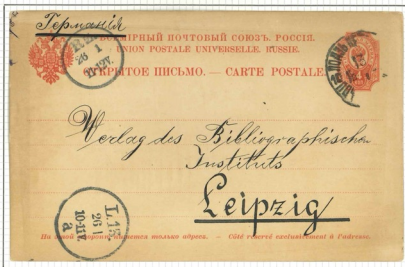 Германія
ВСЕМІРНЫЙ ПОЧТОВЫЙ СОЮЗЪ. РОССІЯ.
UNION POSTALE UNIVERSELLE. RUSSIE.
ОТКРЫТОЕ ПИСЬМО. — CARTE POSTALE
26 1
11-12V.
Verlag des Bibliographischen
Instituts
Leipzig
L.13.
26 1
10-11V
a
На этой сторонѣ пишется только адресъ. — Côté réservé exclusivement à l'adresse.